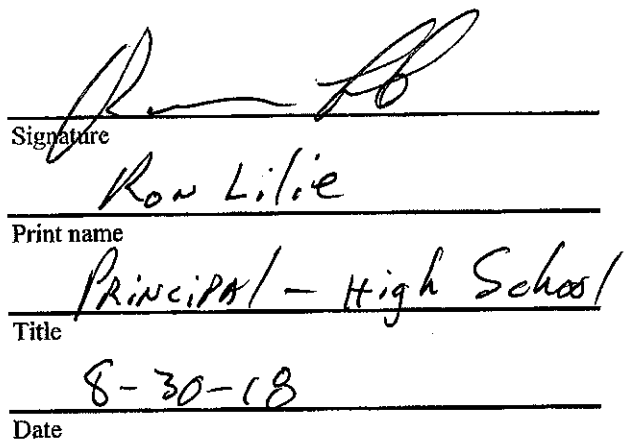 Signature
Ron Lilie
Print name
Principal - High School
Title
8-30-18
Date